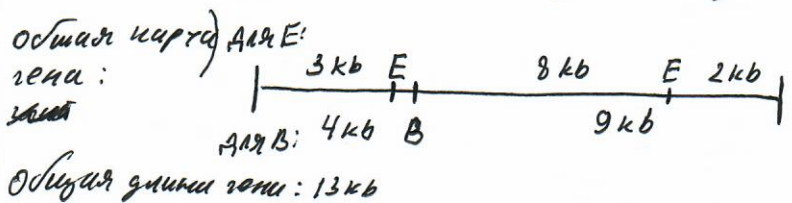 общая карта) для E:
гена: 3 kb E 8 kb E 2 kb
для B: 4 kb B 9 kb
Общая длина гена: 13 kb